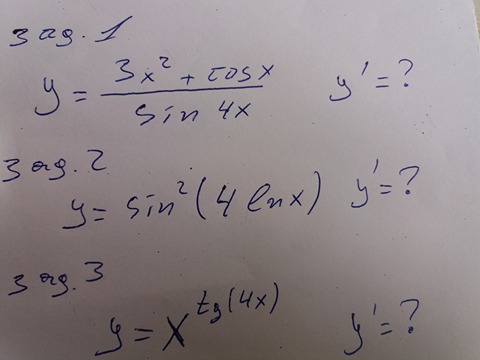 зад. 1
y = (3x² + cosx) / (sin 4x)   y' = ?
зад. 2
y = sin²(4 lnx)   y' = ?
зад. 3
y = x^(tg(4x))   y' = ?